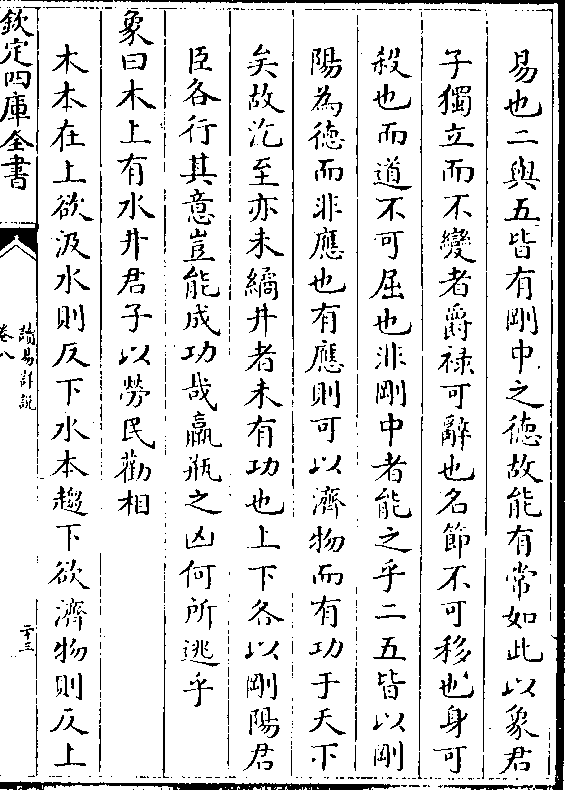 易也二與五皆有剛中之德故能有常如此以象君
子獨立而不變者爵祿可辭也名節不可移也身可
殺也而道不可屈也非剛中者能之乎二五皆以剛
陽為德而非應也有應則可以濟物而有功于天下
矣故汔至亦未繘井者未有功也上下各以剛陽君
臣各行其意豈能成功哉羸瓶之凶何所逃乎
象曰木上有水井君子以勞民勸相
木本在上欲汲水則反下水本趨下欲濟物則反上
欽定四庫全書
讀易詳說
卷八
二十三